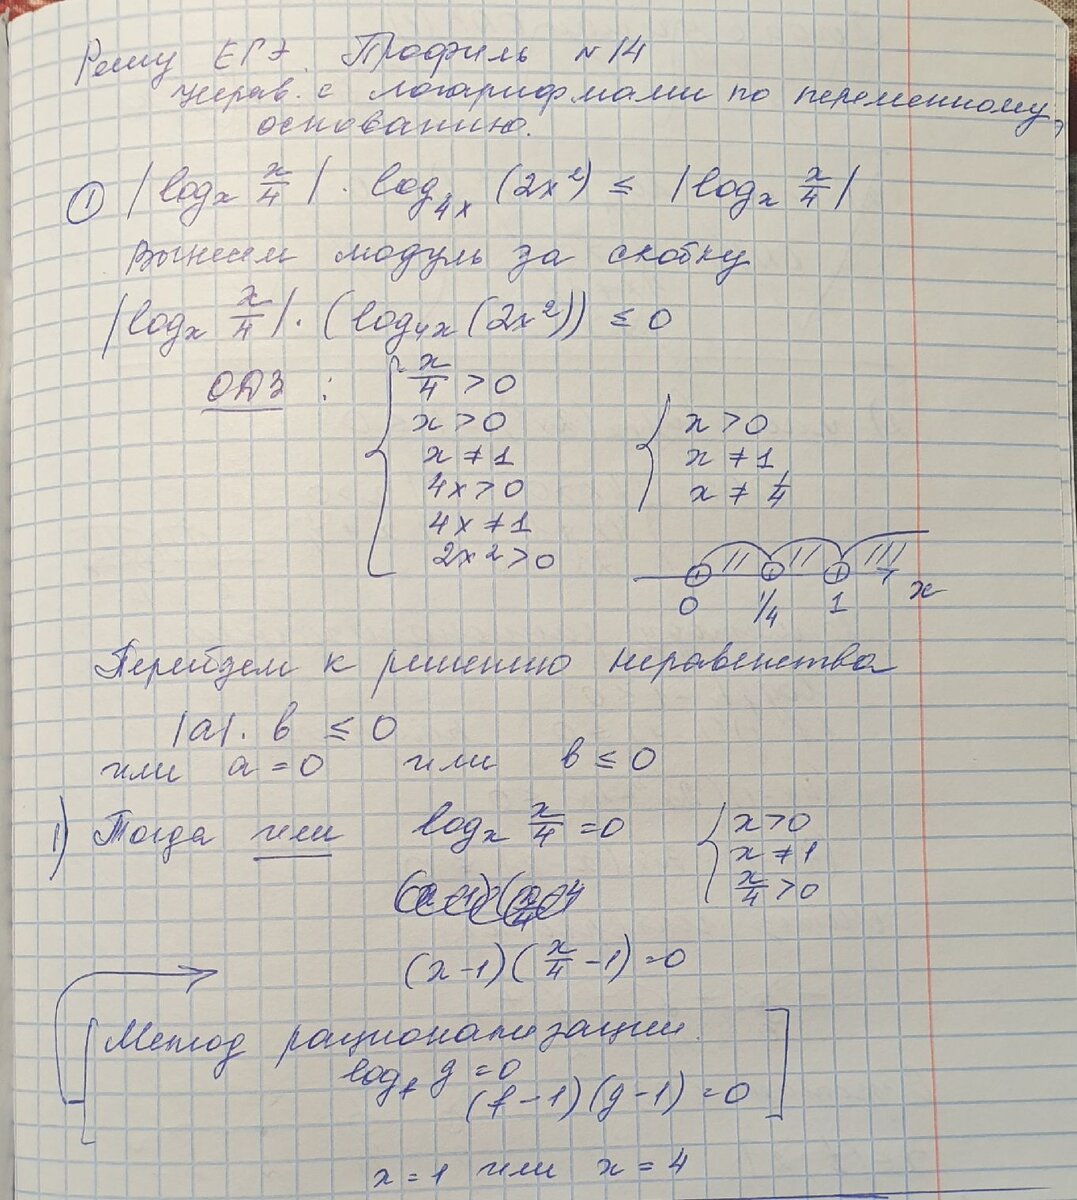 Решу ЕГЭ. Профиль №14
Нерав. с логарифмами по переменному
основанию.
① |log_x x/4| · log_4x (2x²) ≤ |log_x x/4|
Вынесем модуль за скобку
|log_x x/4| · (log_4x (2x²)) ≤ 0
ОДЗ : { x/4 > 0
x > 0
x ≠ 1
4x > 0
4x ≠ 1
2x² > 0
{ x > 0
x ≠ 1
x ≠ 1/4
0 1/4 1 x
Перейдем к решению неравенства
|a| · b ≤ 0
или a = 0 или b ≤ 0
1) Тогда или log_x x/4 = 0 { x > 0
x ≠ 1
x/4 > 0
(x - 1)(x/4 - 1) = 0
[Метод рационализации.
log_f g = 0
(f - 1)(g - 1) = 0]
x = 1 или x = 4